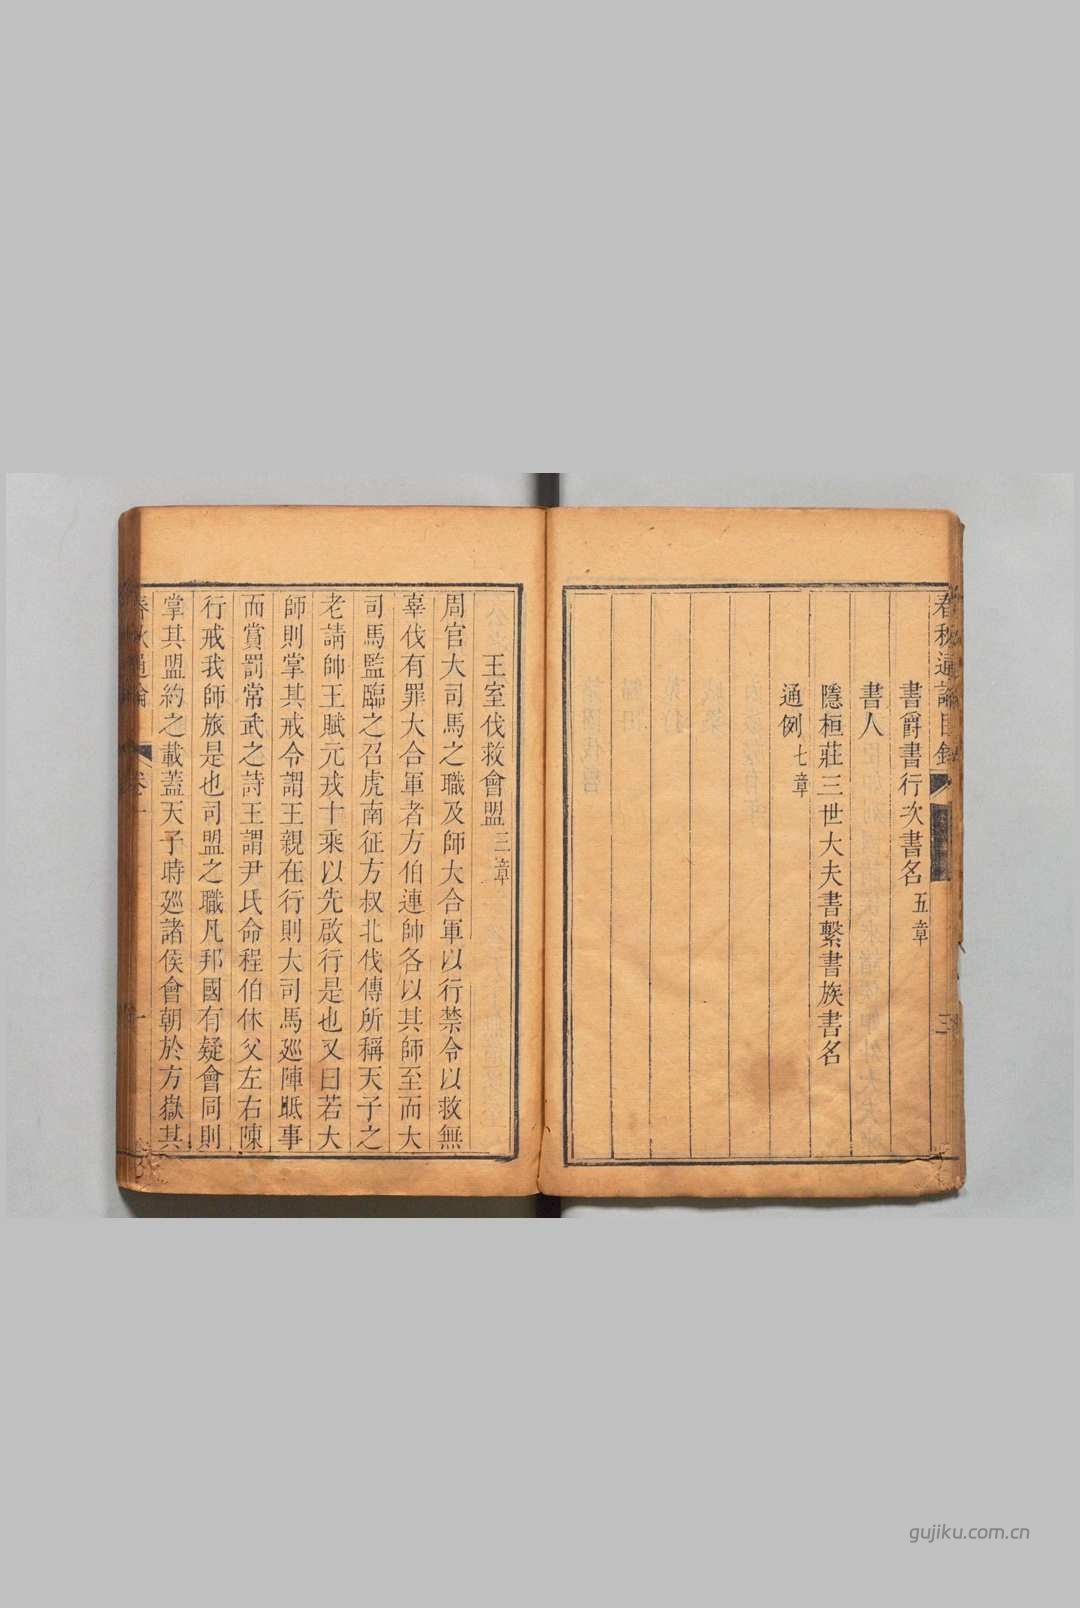 春秋通論目錄
書爵書行次書名五章
書人
隱桓莊三世大夫書繫書族書名
通例七章
王室伐救會盟三章
周官大司馬之職及師大合軍以行禁令以救無
辜伐有罪大合軍者方伯連帥各以其師至而大
司馬監臨之召虎南征方叔北伐傳所稱天子之
老請帥王賦元戎十乘以先啟行是也又曰若大
師則掌其戒令謂王親在行則大司馬廵陣眡事
而賞罰常武之詩王謂尹氏命程伯休父左右陳
行戒我師旅是也司盟之職凡邦國有疑會同則
掌其盟約之載蓋天子時廵諸侯會朝於方嶽其
春秋通論 卷一 一
gujiku.com.cn